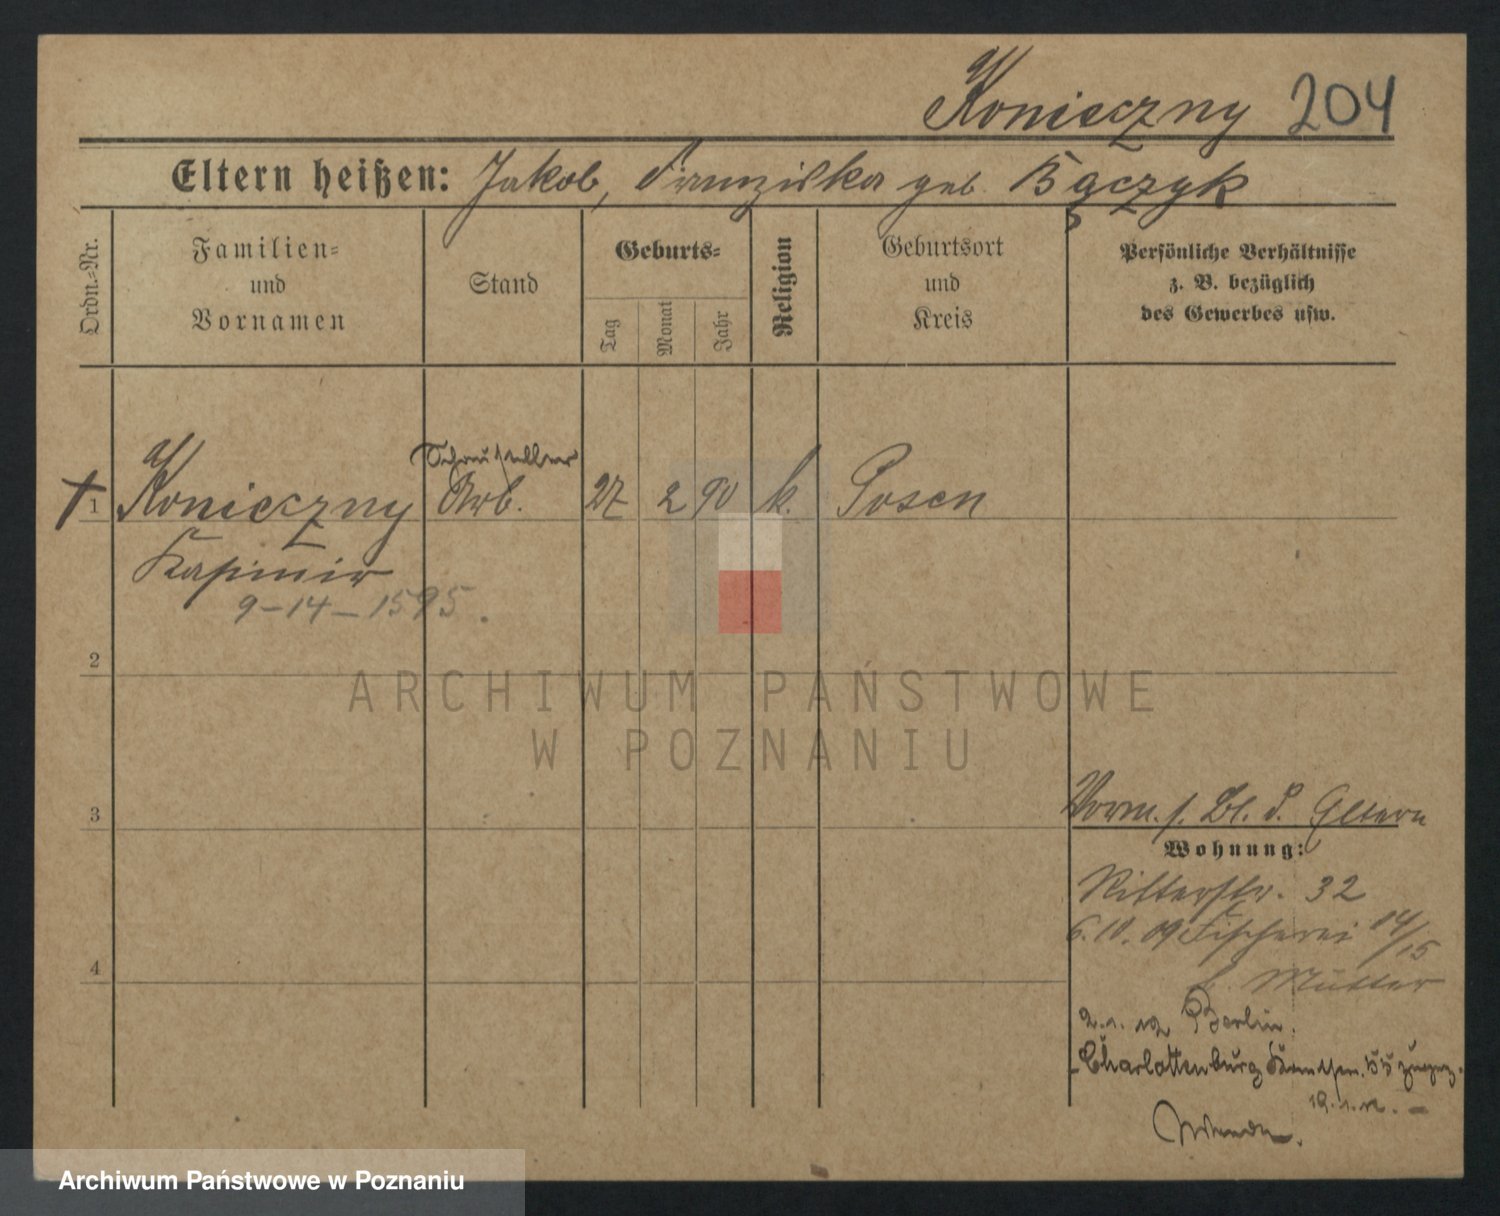 Konieczny 204
Eltern heißen: Jakob, Franziska geb. Bączyk
Ordn.-Nr.
Familien-
und
Vornamen
Stand
Geburts-
Tag
Monat
Jahr
Religion
Geburtsort
und
Kreis
Persönliche Verhältnisse
z. B. bezüglich
des Gewerbes usw.
† 1 Konieczny Arb. 27 2 90 k. Posen
Kasimir
9-14-1595.
2
ARCHIWUM PAŃSTWOWE
W POZNANIU
3
Vorm. s. Bl. d. Eltern
Wohnung:
Ritterstr. 32
6.10.09 Fischerei 14/15
b. Mutter
4
2.1.12 Berlin.
Charlottenburg 55
19.1.12. –
Archiwum Państwowe w Poznaniu